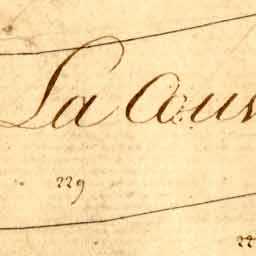 La Cour
229
22